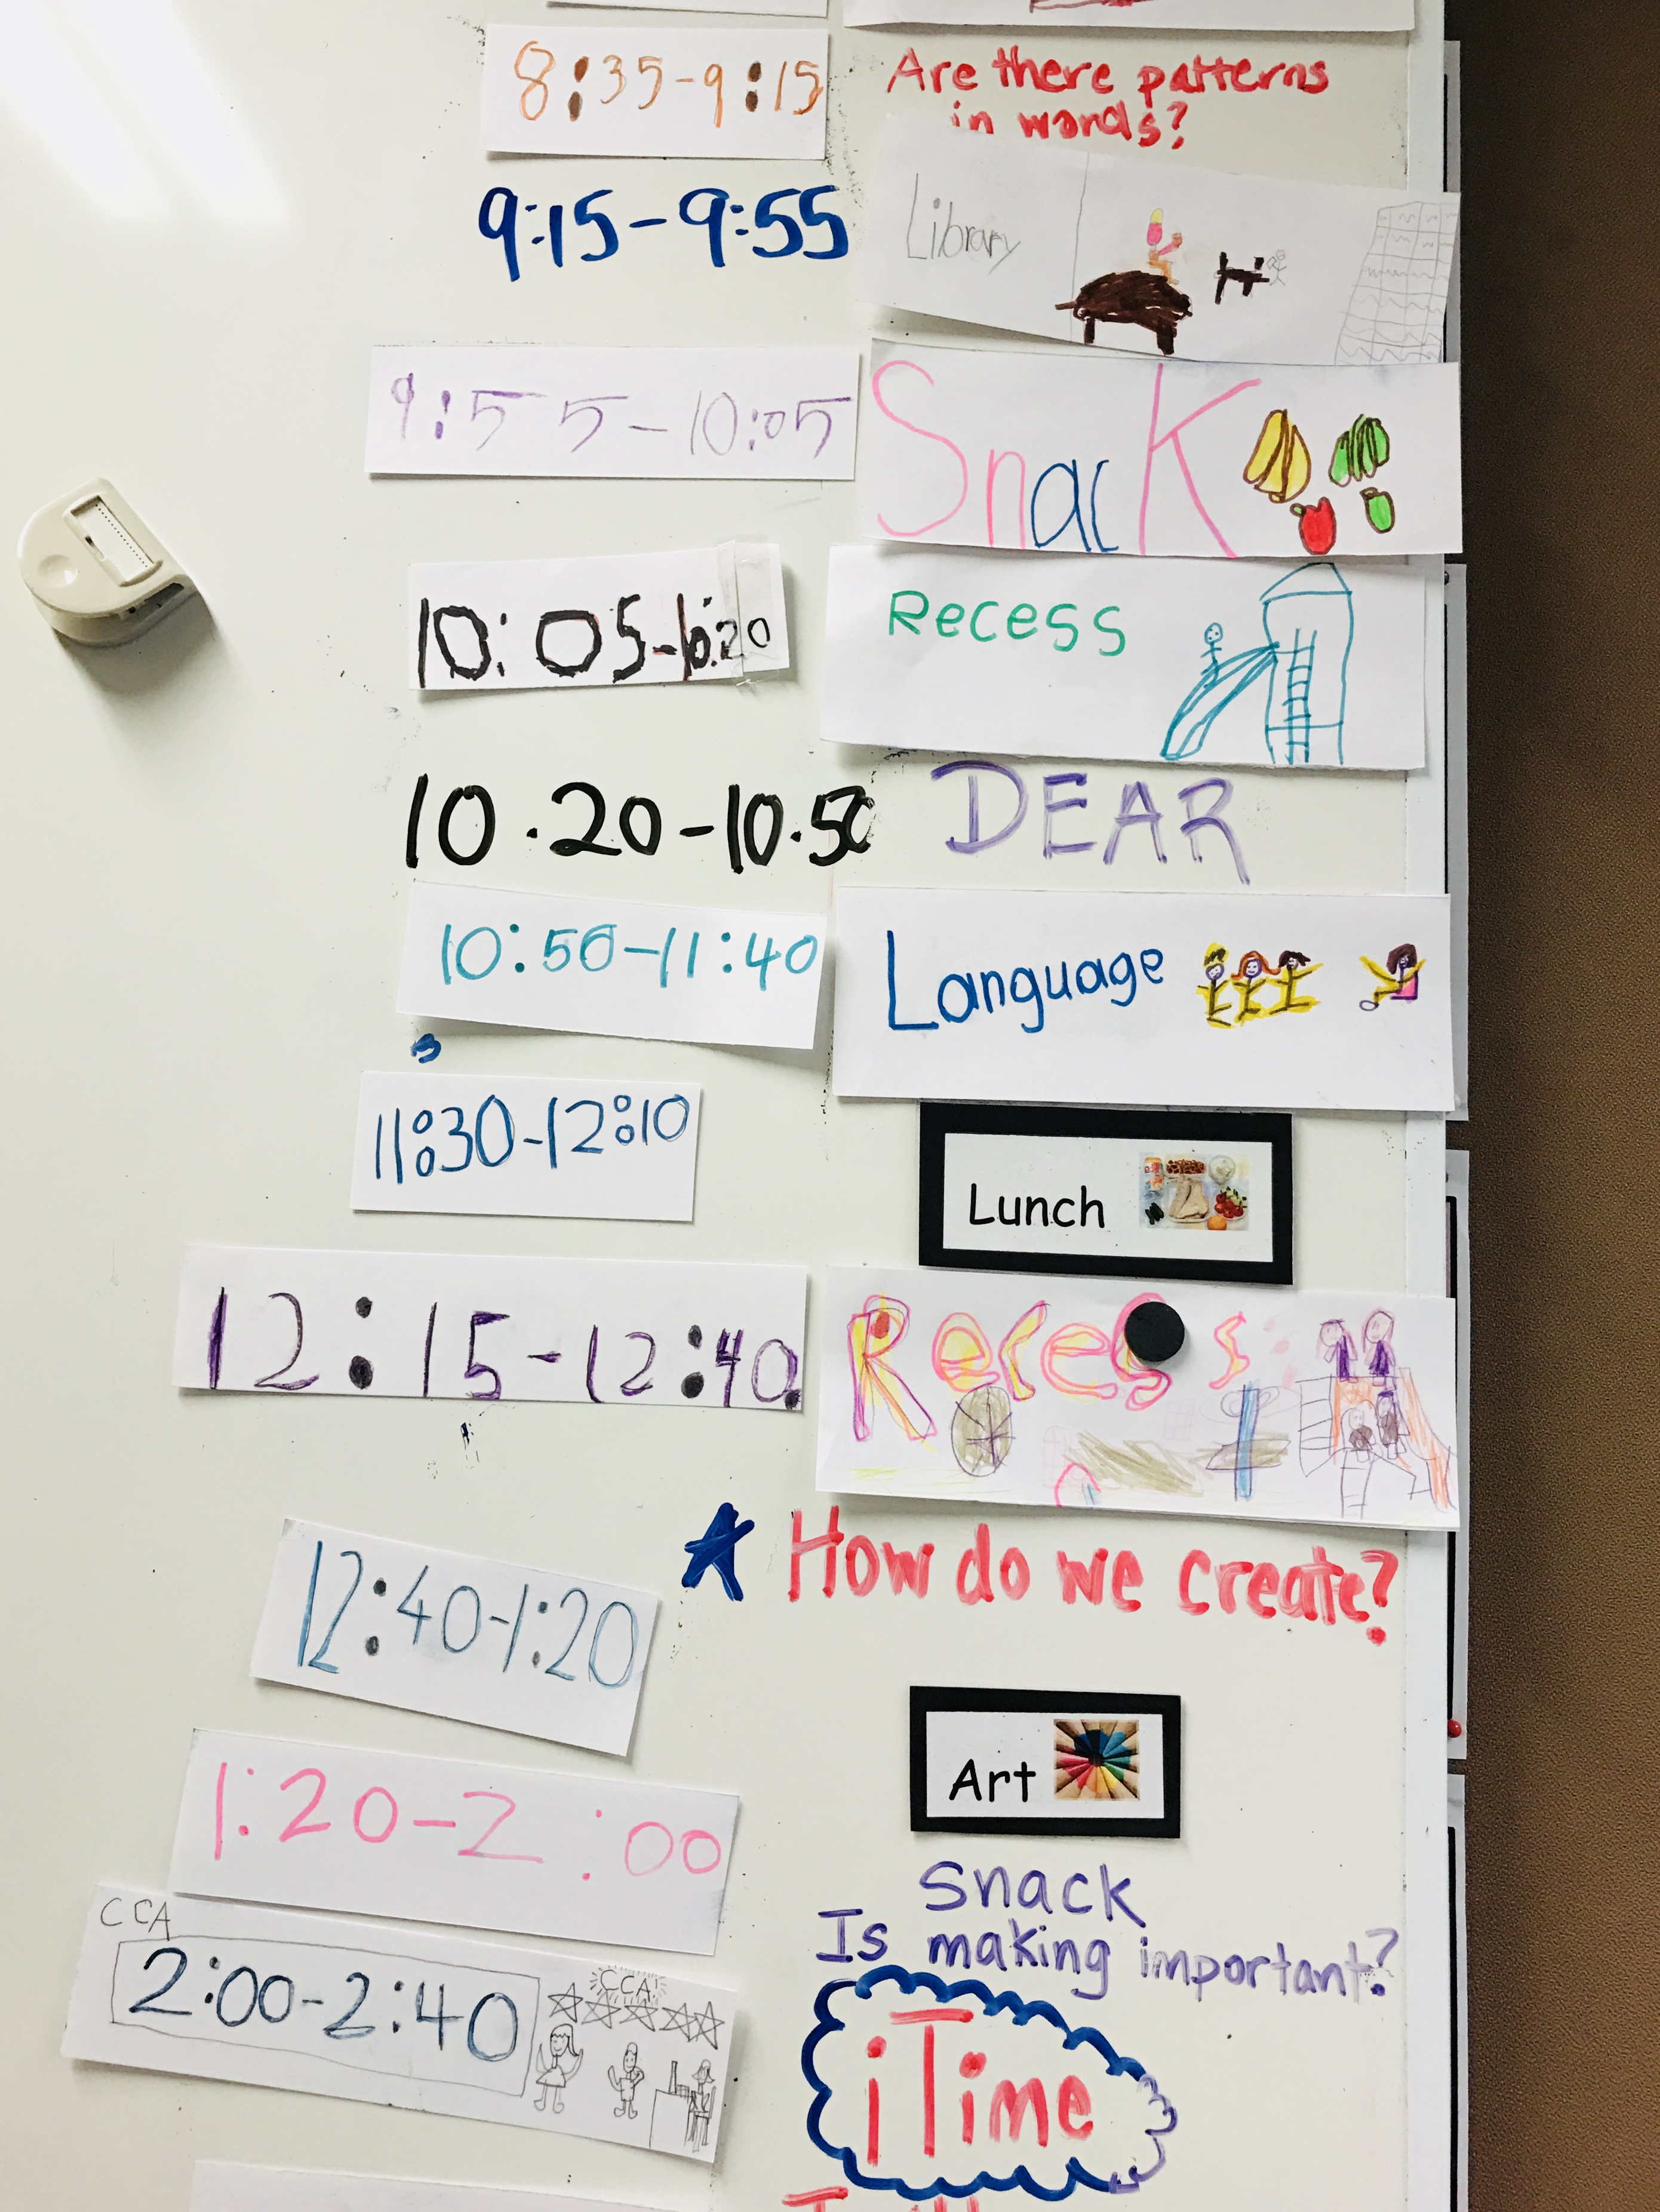 8:35-9:15 Are there patterns
in words?
9:15-9:55 Library
9:55-10:05 Snack
10:05-10:20 Recess
10.20-10.50 DEAR
10:50-11:40 Language
11:30-12:10 Lunch
12:15-12:40 Recess
12:40-1:20 How do we create?
1:20-2:00 Art
Snack
CCA Is making important?
2:00-2:40 CCA! iTime